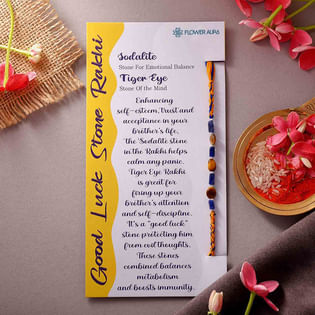 FLOWER AURA
Good Luck Stone Rakhi
Sodalite
Stone For Emotional Balance
Tiger Eye
Stone Of the Mind
Enhancing
self-esteem, trust and
acceptance in your
brother's life,
the Sodalite stone
in the Rakhi helps
calm any panic.
Tiger Eye Rakhi
is great for
firing up your
brother's attention
and self-discipline.
It's a "good luck"
stone protecting him
from evil thoughts.
These stones
combined balances
metabolism
and boosts immunity.